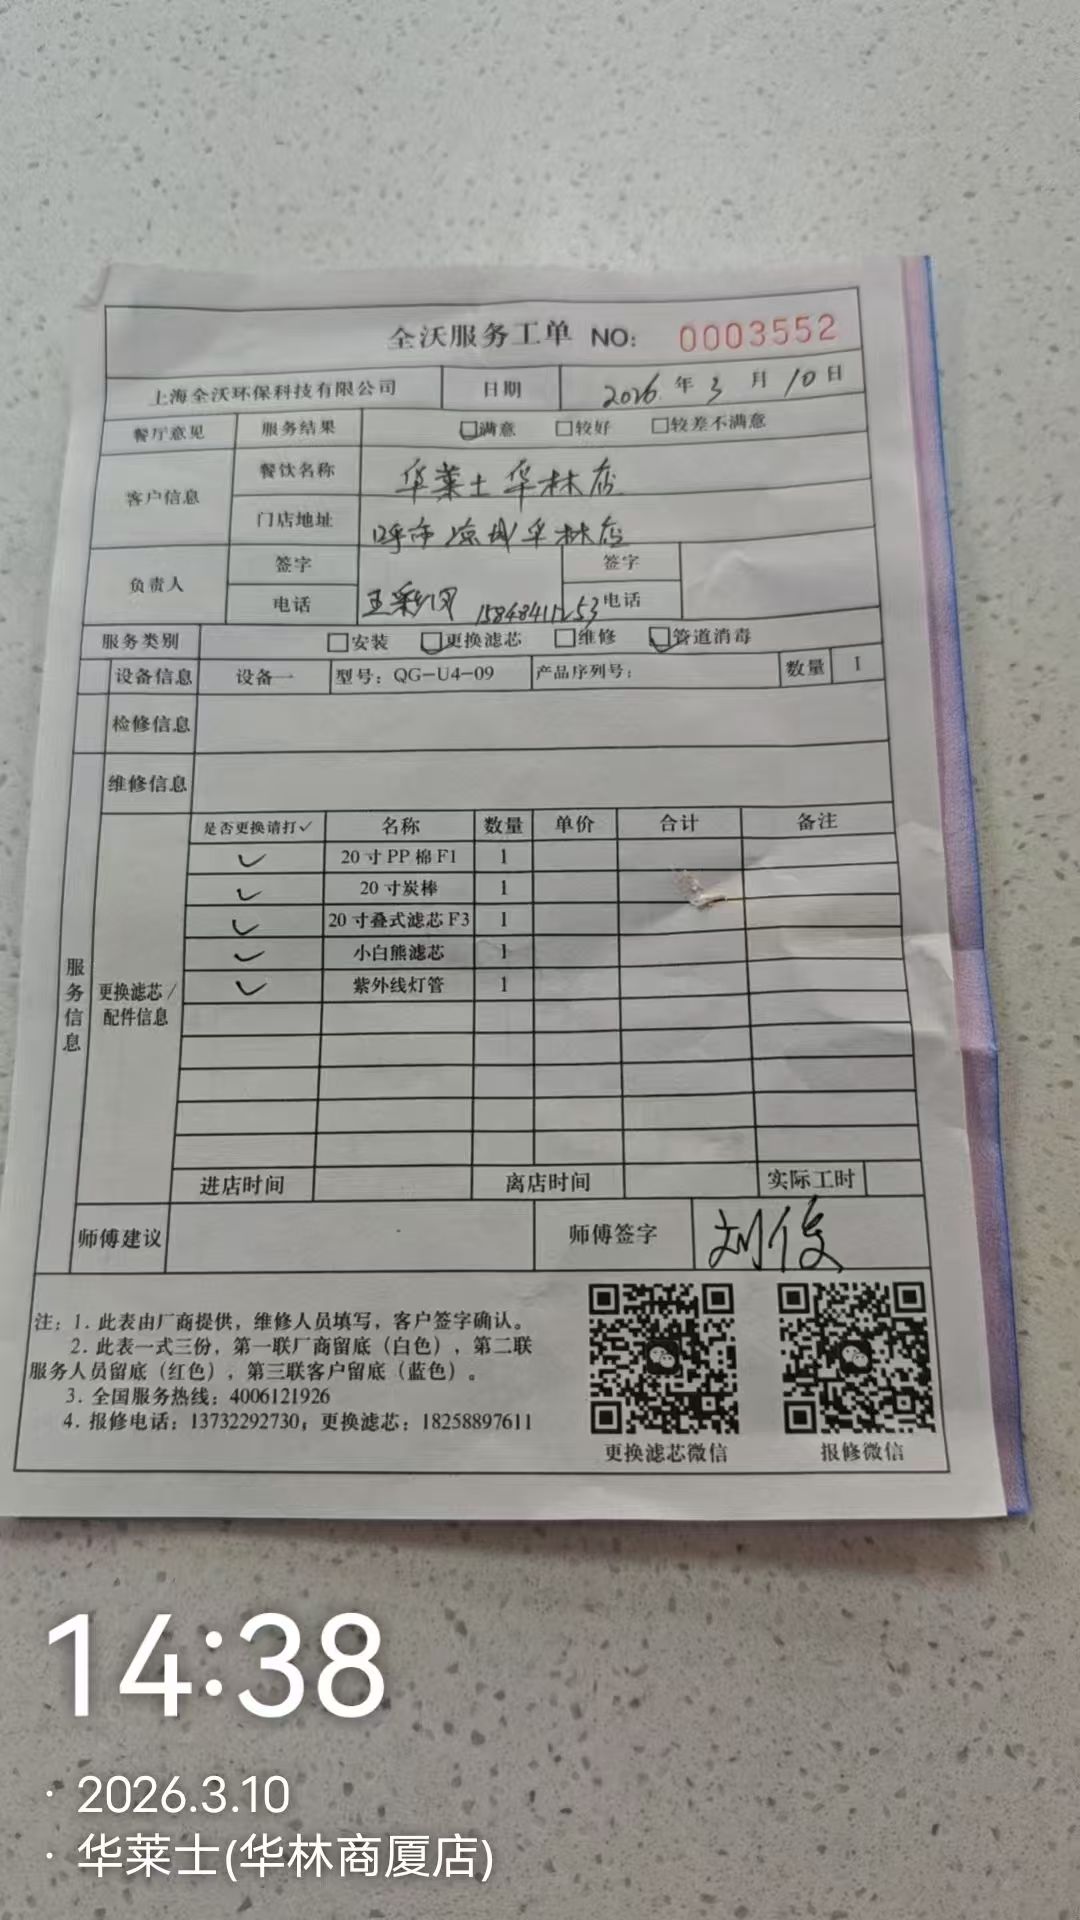 全沃服务工单 NO: 0003552
上海全沃环保科技有限公司 日期 2026 年 3 月 10 日
餐厅意见 服务结果 满意 较好 较差不满意
客户信息 餐饮名称 华莱士华林店
门店地址 呼市 华林店
负责人 签字 签字
电话 王彩 15848411253 电话
服务类别 安装 更换滤芯 维修 管道消毒
设备信息 设备一 型号: QG-U4-09 产品序列号: 数量 1
检修信息
维修信息
服务信息
更换滤芯/
配件信息
是否更换请打✓ 名称 数量 单价 合计 备注
✓ 20寸PP棉F1 1
✓ 20寸炭棒 1
✓ 20寸叠式滤芯F3 1
✓ 小白熊滤芯 1
✓ 紫外线灯管 1
进店时间 离店时间 实际工时
师傅建议 师傅签字 刘俊
注: 1. 此表由厂商提供, 维修人员填写, 客户签字确认。
2. 此表一式三份, 第一联厂商留底(白色), 第二联
服务人员留底(红色), 第三联客户留底(蓝色)。
3. 全国服务热线: 4006121926
4. 报修电话: 13732292730; 更换滤芯: 18258897611
更换滤芯微信 报修微信
14:38
· 2026.3.10
· 华莱士(华林商厦店)